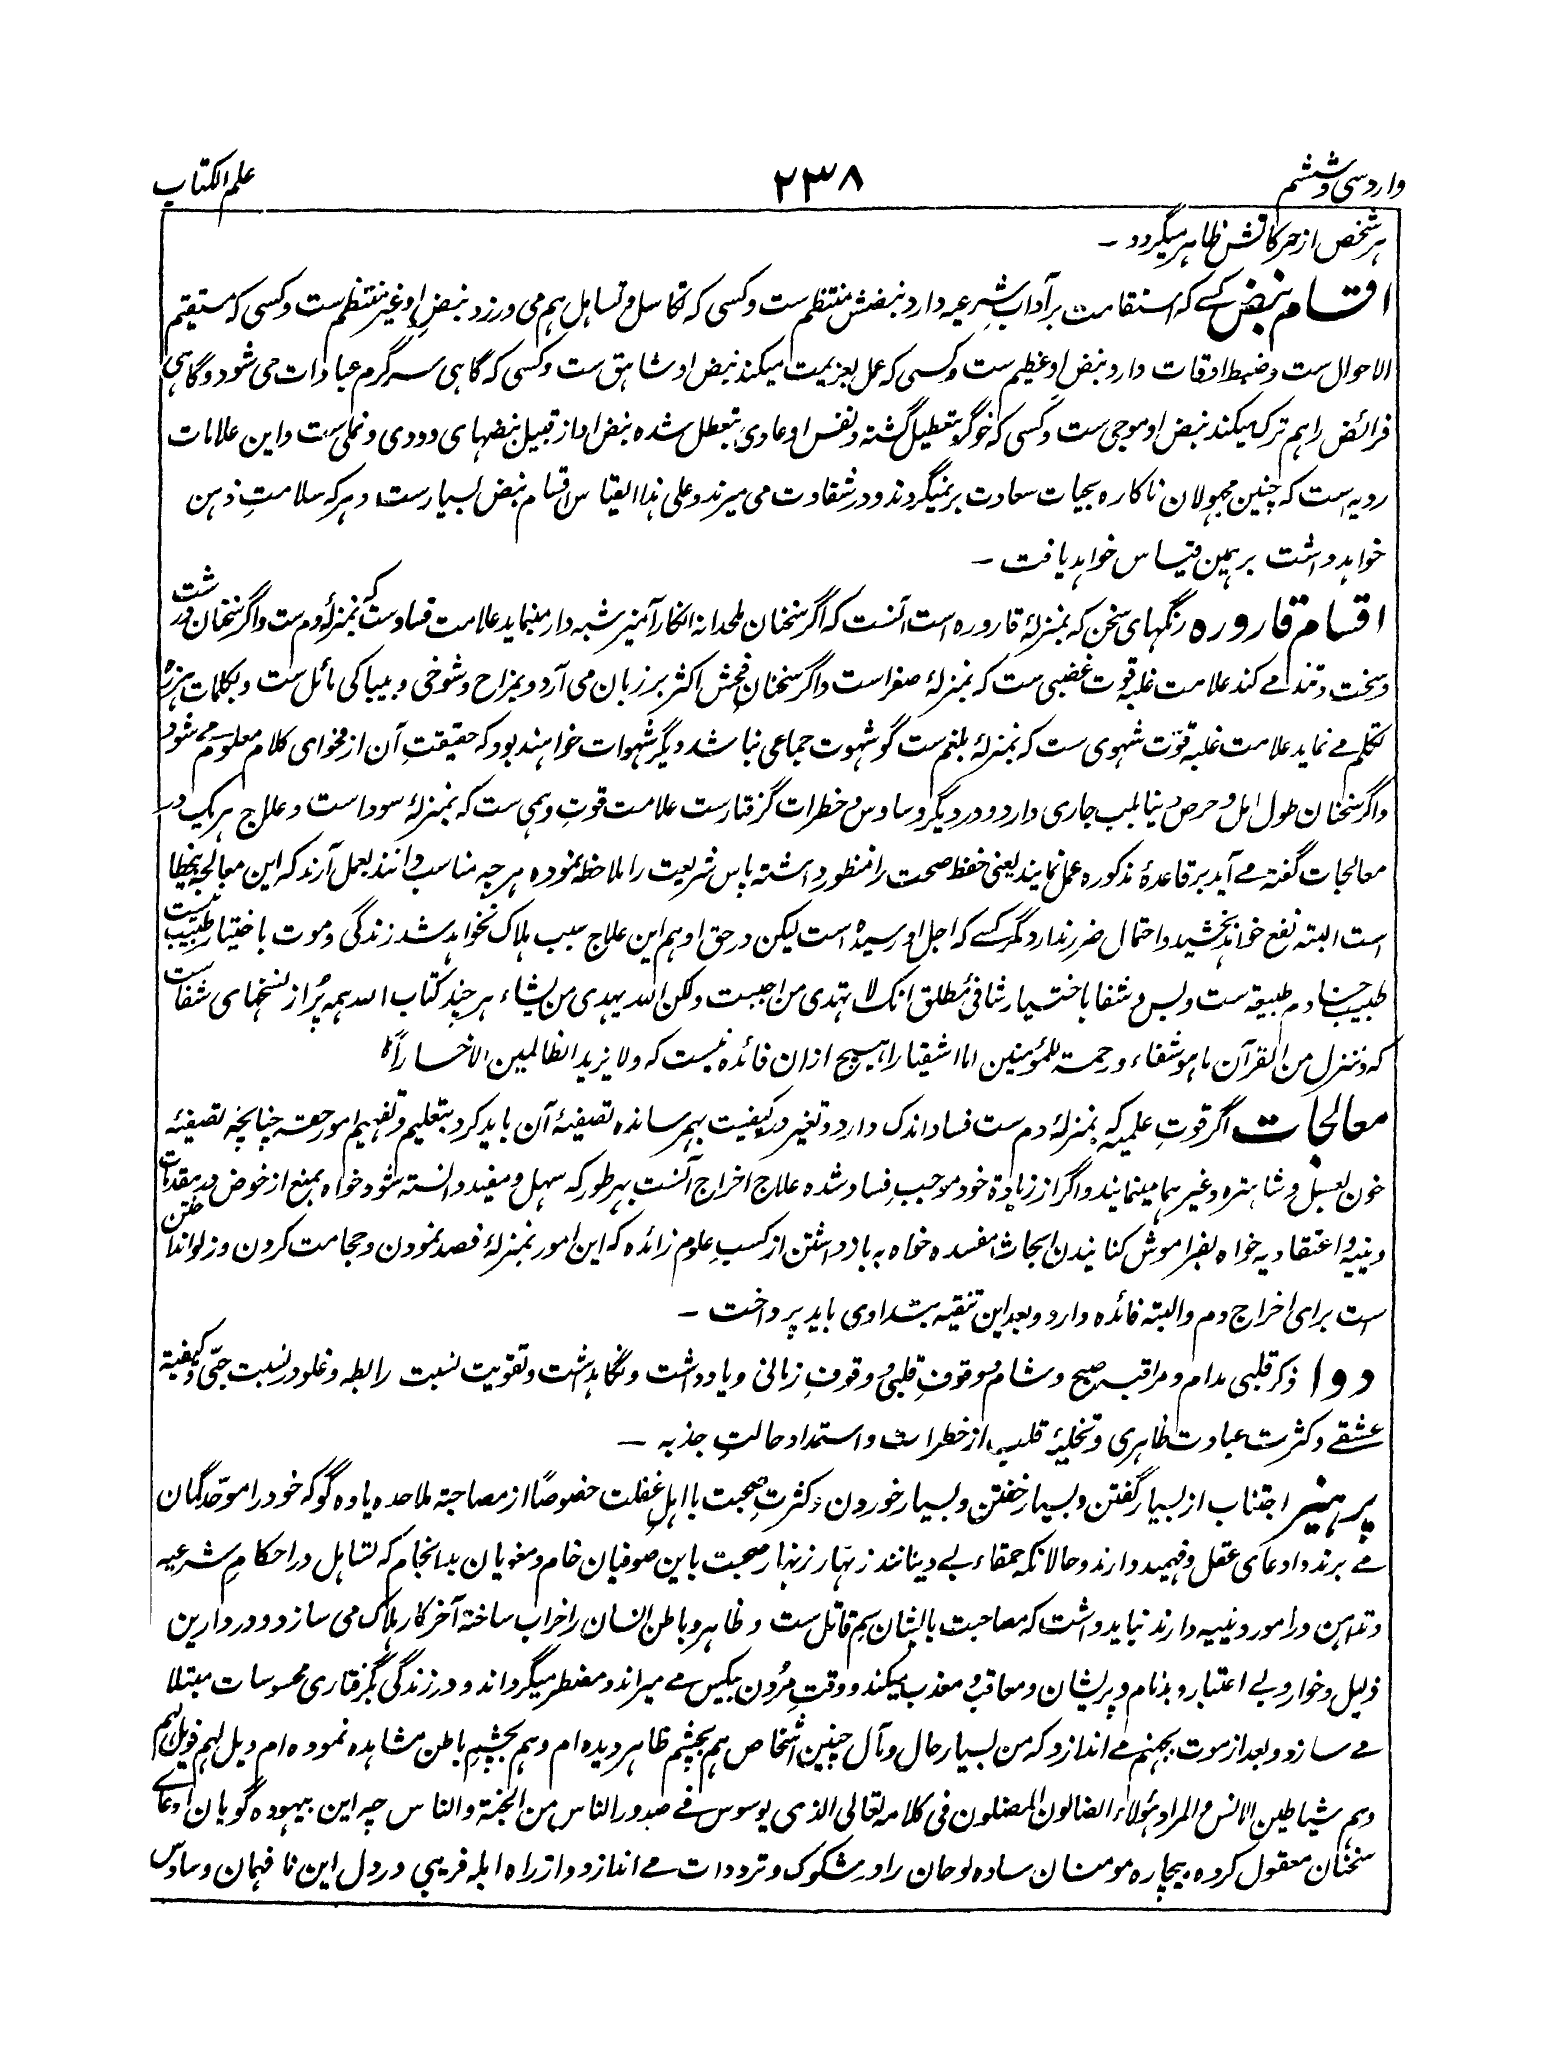 وارد سی و ششم
۲۳۸
علم الکتاب
هر شخص از حرکاتش ظاهر میگردد ـ
اقسام نبض کسے که استقامت بر آداب شرعیه دارد نبضش منتظم ست و کسی که تکاسل و تساهل هم می ورزد نبضِ او غیر منتظم ست و کسی که مستقیم
الاحوال ست و ضبط اوقات دارد نبض او عظیم ست و کسی که عمل بعزیمت میکند نبض او شاهق ست و کسی که گاهی سرگرم عبادات می شود و گاهی
فرائض را هم ترک میکند نبض او موجی ست و کسی که خوگر بتعطیل گشته و نفس او عادی بتعطل شده نبض او از قبیل نبضهای دودی و نملی ست و این علامات
ردیه است که چنین مجهولان ناکاره بحیات سعادت برنمیگردند و در شقاوت می میرند و علی هذا القیاس اقسام نبض بسیارست و هر که سلامتِ ذهن
خواهد داشت بر همین قیاس خواهد یافت ـ
اقسام قاروره رنگهای سخن که بمنزلهٔ قاروره است آنست که اگر سخنان ملحدانه انکار آمیز شبه دار مینماید علامت فساد ست که بمنزلهٔ دم ست و اگر سخنان درشت
و سخت و تند مے کند علامت غلبه قوت غضبی ست که بمنزلهٔ صفراست و اگر سخنانِ فحش اکثر بر زبان می آرد و بمزاح و شوخی و بیباکی مائل ست و بکلمات هزره
تکلم مے نماید علامت غلبه قوّت شهوی ست که بمنزلهٔ بلغم ست گو شهوت جماعی نباشد دیگر شهوات خواهند بود که حقیقتِ آن از فحوای کلام معلوم مے شود
و اگر سخنان طول امل و حرص دنیا بلب جاری دارد و در دیگر وساوس و خطرات گرفتارست علامت قوتِ وهمی ست که بمنزلهٔ سوداست و علاج هر یک در
معالجات گفته مے آید بر قاعدهٔ مذکوره عمل نمایند یعنی حفظ صحت را منظور داشته پاس شریعت را ملاحظه نموده هر چه مناسب دانند بعمل آرند که این معالجه بیخطا
است البته نفع خواهد بخشید و احتمال ضرر ندارد مگر کسے که اجل او رسیده است لیکن در حق او هم این علاج سبب هلاک نخواهد شد زندگی و موت باختیار طبیب نیست
طبیب خادم طبیعة ست و بس و شفا باختیار شافی مطلق انک لا تهدی من احببت ولکن الله یهدی من یشاء هر چند کتاب الله همه پُر از نسخهای شفاست
که و ننزل من القرآن ما هو شفاء و رحمة للمؤمنین اما اشقیا را هیچ ازان فائده نیست که ولا یزید الظالمین الا خساراً
معالجات اگر قوتِ علمیه که بمنزلهٔ دم ست فساد اندک دارد و تغیر در کیفیت بهم رسانده تصفیهٔ آن باید کرد بتعلیم و تفهیم امور حقه چنانچه تصفیهٔ
خون بعسل و شاهتره و غیر هما مینمایند و اگر از زیادة خود موجب فساد شده علاج اخراج آنست بهر طور که سهل و مفید دانسته شود خواه بمنع از خوض در مقدمات
دینیه و اعتقادیه خواه بفراموش کنانیدن ابحاث مفسده خواه به باز داشتن از کسب علوم زائده که این امور بمنزلهٔ فصد نمودن و حجامت کردن و زلو انداختن
است برای اخراج دم و البته فائده دارد و بعد این تنقیه بتداوی باید پرداخت ـ
دوا ذکر قلبی مدام و مراقبه صبح و شام و وقوفِ قلبی و وقوفِ زمانی و یادداشت و نگاهداشت و تقویت نسبت رابطه و غلو در نسبت حبّی و کیفیة
عشقے و کثرت عبادت ظاهری و تخلیهٔ قلب از خطرات و استمداد حالتِ جذبه ـ
پرهیز اجتناب از بسیار گفتن و بسیار خفتن و بسیار خوردن و کثرتِ صحبت با اهلِ غفلت خصوصاً از مصاحبة ملاحده یاوه گو که خود را موحّد گمان
مے برند و ادعای عقل و فهمید دارند و حالانکه حمقاء بے دینانند زنهار زنهار صحبت باین صوفیان خام و مغویان بدانجام که تساهل در احکامِ شرعیه
و تداهن در امور دینیه دارند نباید داشت که مصاحبت با ایشان سم قاتل ست و ظاهر و باطن انسان را خراب ساخته آخر کار هلاک می سازد و در دارین
ذلیل و خوار و بے اعتبار و بدنام و پریشان و معاقب و معذب میکند و وقتِ مُردن بیکس مے میراند و مضطر میگرداند و در زندگی بگرفتاری محسوسات مبتلا
مے سازد و بعد از موت بجهنم مے اندازد که من بسیار حال و مآل چنین اشخاص هم بچشم ظاهر دیده ام و هم بچشمِ باطن مشاهده نموده ام ویل لهم فویل لهم
و هم شیاطین الانس و المراد هؤلاء الضالون المضلون فی کلامه تعالی الذی یوسوس فے صدور الناس من الجنة و الناس چه این بیهوده گویان ادعاے
سخنان معقول کرده بیچاره مومنان ساده لوحان را در شکوک و ترددات مے اندازد و از راه ابله فریبی در دل این نافهمان وساوس